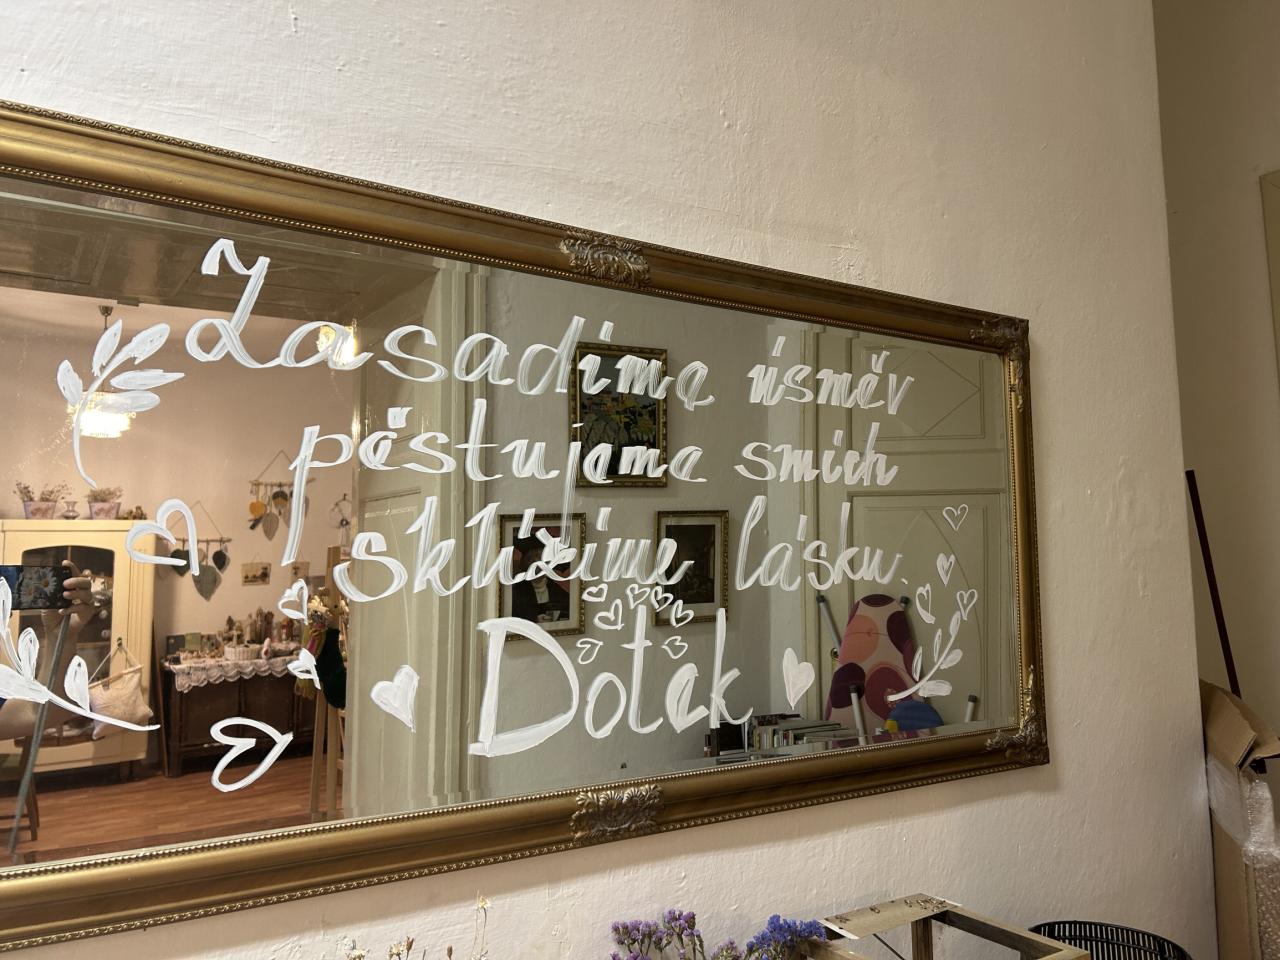 Zasadíme úsměv
pěstujeme smích
sklízíme lásku.
Dotek